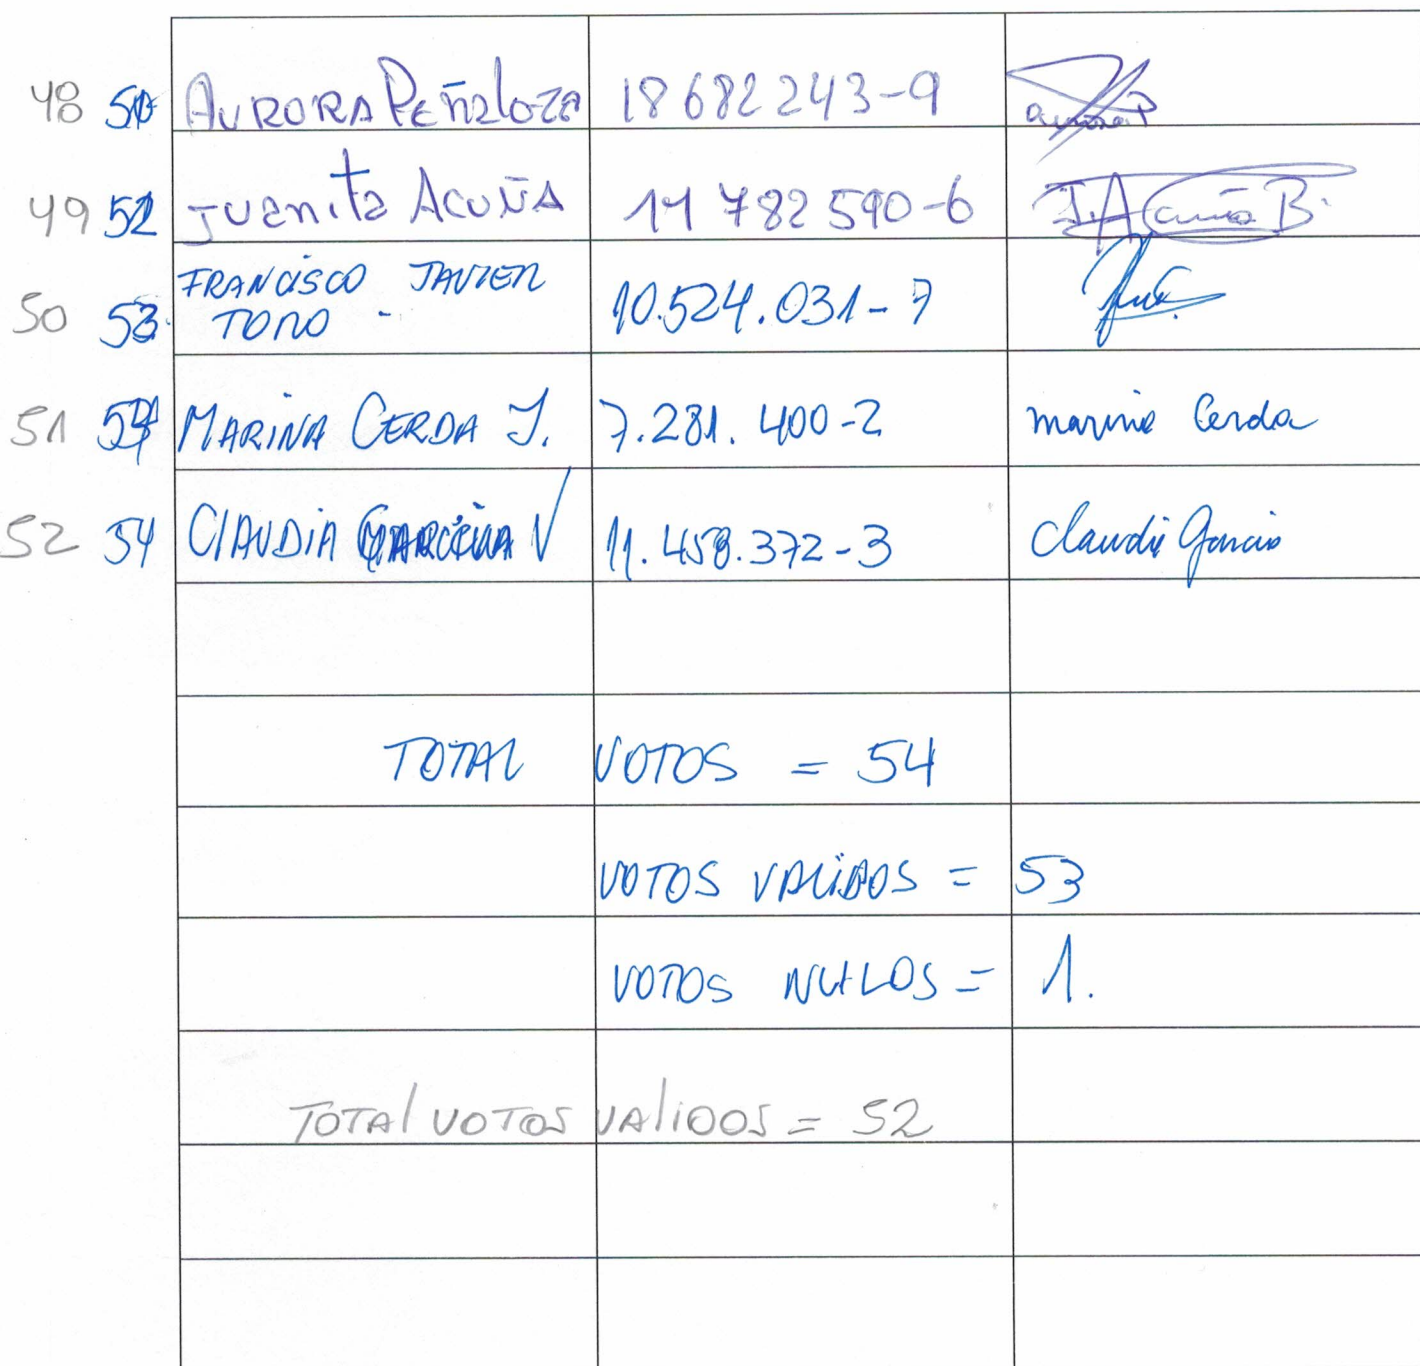 48 50 AURORA Peñaloza 18682243-9 aurora P
49 51 Juanita Acuña 11 782 590-6 J. Acuña B.
FRANCISCO JAVIER
50 52 TORO - 10.524.031-7
51 53 MARINA CERDA J. 7.281.400-2 marina Cerda
52 54 CLAUDIA GARCIA V 11.458.372-3 Claudia Garcia
TOTAL VOTOS = 54
VOTOS VALIDOS = 53
VOTOS NULOS = 1.
TOTAL VOTOS VALIDOS = 52